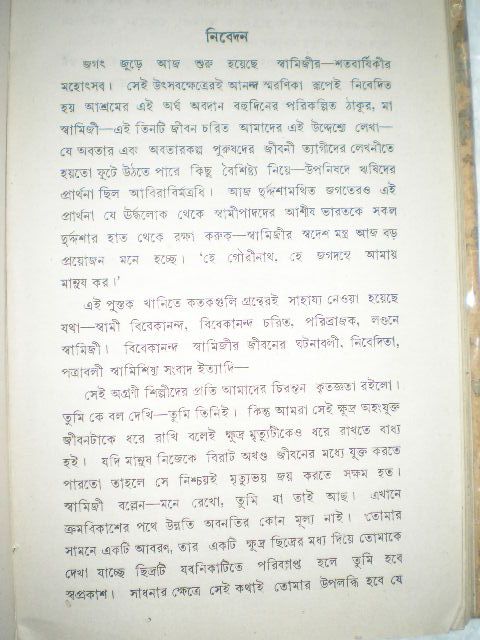 নিবেদন
জগৎ জুড়ে আজ শুরু হয়েছে স্বামিজীর—শতবার্ষিকীর
মহোৎসব। সেই উৎসবক্ষেত্রেরই আনন্দ স্মরণিকা রূপেই নিবেদিত
হয় আশ্রমের এই অর্ঘ অবদান বহুদিনের পরিকল্পিত ঠাকুর, মা
স্বামিজী—এই তিনটি জীবন চরিত আমাদের এই উদ্দেশ্যে লেখা—
যে অবতার এবং অবতারকল্প পুরুষদের জীবনী ত্যাগীদের লেখনীতে
হয়তো ফুটে উঠতে পারে কিছু বৈশিষ্ট্য নিয়ে—উপনিষদে ঋষিদের
প্রার্থনা ছিল আবিরাবির্মএধি। আজ দুর্দ্দশামথিত জগতেরও এই
প্রার্থনা যে ঊর্দ্ধলোক থেকে স্বামীপাদদের আশীষ ভারতকে সকল
দুর্দ্দশার হাত থেকে রক্ষা করুক—স্বামিজীর স্বদেশ মন্ত্র আজ বড়
প্রয়োজন মনে হচ্ছে। ‘হে গৌরীনাথ, হে জগদম্বে আমায়
মানুষ কর।’
এই পুস্তক খানিতে কতকগুলি গ্রন্থেরই সাহায্য নেওয়া হয়েছে
যথা—স্বামী বিবেকানন্দ, বিবেকানন্দ চরিত, পরিব্রাজক, লণ্ডনে
স্বামিজী। বিবেকানন্দ স্বামিজীর জীবনের ঘটনাবলী, নিবেদিতা,
পত্রাবলী স্বামিশিষ্য সংবাদ ইত্যাদি—
সেই অগ্রণী শিল্পীদের প্রতি আমাদের চিরন্তন কৃতজ্ঞতা রইলো।
তুমি কে বল দেখি—তুমি তিনিই। কিন্তু আমরা সেই ক্ষুদ্র অহংযুক্ত
জীবনটাকে ধরে রাখি বলেই ক্ষুদ্র মৃত্যুটীকেও ধরে রাখতে বাধ্য
হই। যদি মানুষ নিজেকে বিরাট অখণ্ড জীবনের মধ্যে যুক্ত করতে
পারতো তাহলে সে নিশ্চয়ই মৃত্যুভয় জয় করতে সক্ষম হত।
স্বামিজী বল্লেন—মনে রেখো, তুমি যা তাই আছ। এখানে
ক্রমবিকাশের পথে উন্নতি অবনতির কোন মূল্য নাই। তোমার
সামনে একটি আবরণ, তার একটি ক্ষুদ্র ছিদ্রের মধ্য দিয়ে তোমাকে
দেখা যাচ্ছে ছিদ্রটি যবনিকাটিতে পরিব্যাপ্ত হলে তুমি হবে
স্বপ্রকাশ। সাধনার ক্ষেত্রে সেই কথাই তোমার উপলব্ধি হবে যে